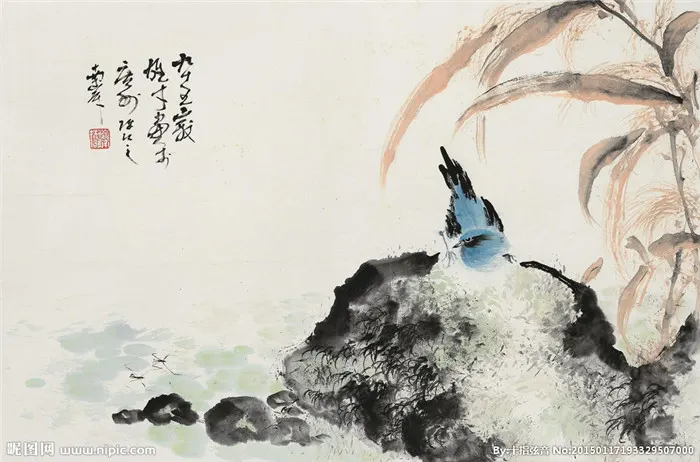 九十五歲
雄才畫於
廣州珠江之
南岸
昵图网 www.nipic.com
By:十指弦音 No:20150117193329507000